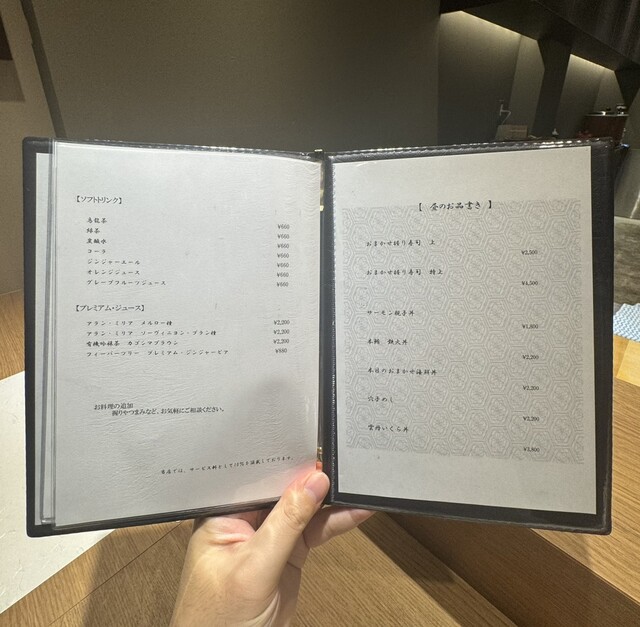 【ソフトドリンク】
烏龍茶 ¥660
緑茶 ¥660
黒酢水 ¥660
コーラ ¥660
ジンジャーエール ¥660
オレンジジュース ¥660
グレープフルーツジュース ¥660
【プレミアム・ジュース】
アラン・ミリア メルロー種 ¥2,200
アラン・ミリア ソーヴィニヨン・ブラン種 ¥2,200
有機吟緑茶 カゴシマブラウン ¥2,200
フィーバーツリー プレミアム・ジンジャービア ¥880
お料理の追加
握りやつまみなど、お気軽にご相談ください。
当店では、サービス料として10%を頂戴しております。
【 昼のお品書き 】
おまかせ握り寿司 上
¥2,500
おまかせ握り寿司 特上
¥4,500
サーモン親子丼
¥1,800
本鮪 鉄火丼
¥2,200
本日のおまかせ海鮮丼
¥2,200
穴子めし
¥2,200
雲丹いくら丼
¥3,800